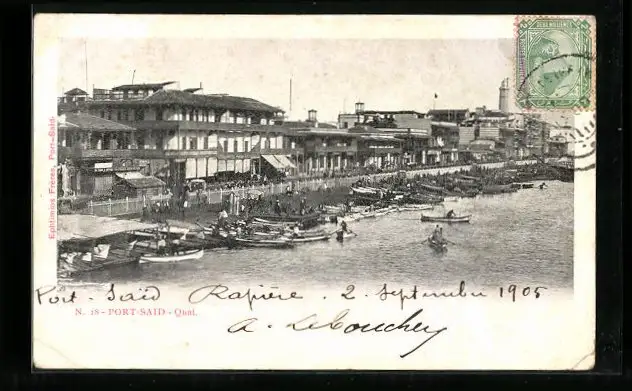 Ephtimios Frères, Port-Said.
Port-Saïd - Rapière. 2. Septembre 1905
N. 18 - PORT-SAID - Quai.
A. Lebouchery